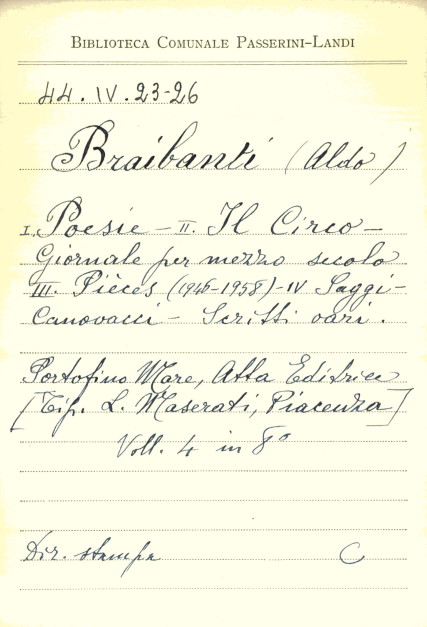 BIBLIOTECA COMUNALE PASSERINI-LANDI
44.IV.23-26
Braibanti (Aldo)
I. Poesie - II. Il Circo -
Giornale per mezzo secolo
III. Pièces (1946-1958) - IV Saggi -
Canovacci - Scritti vari.
Portofino Mare, Atta Editrice
[Tip. L. Maserati, Piacenza]
Voll. 4 in 8°
Dir. stampa C